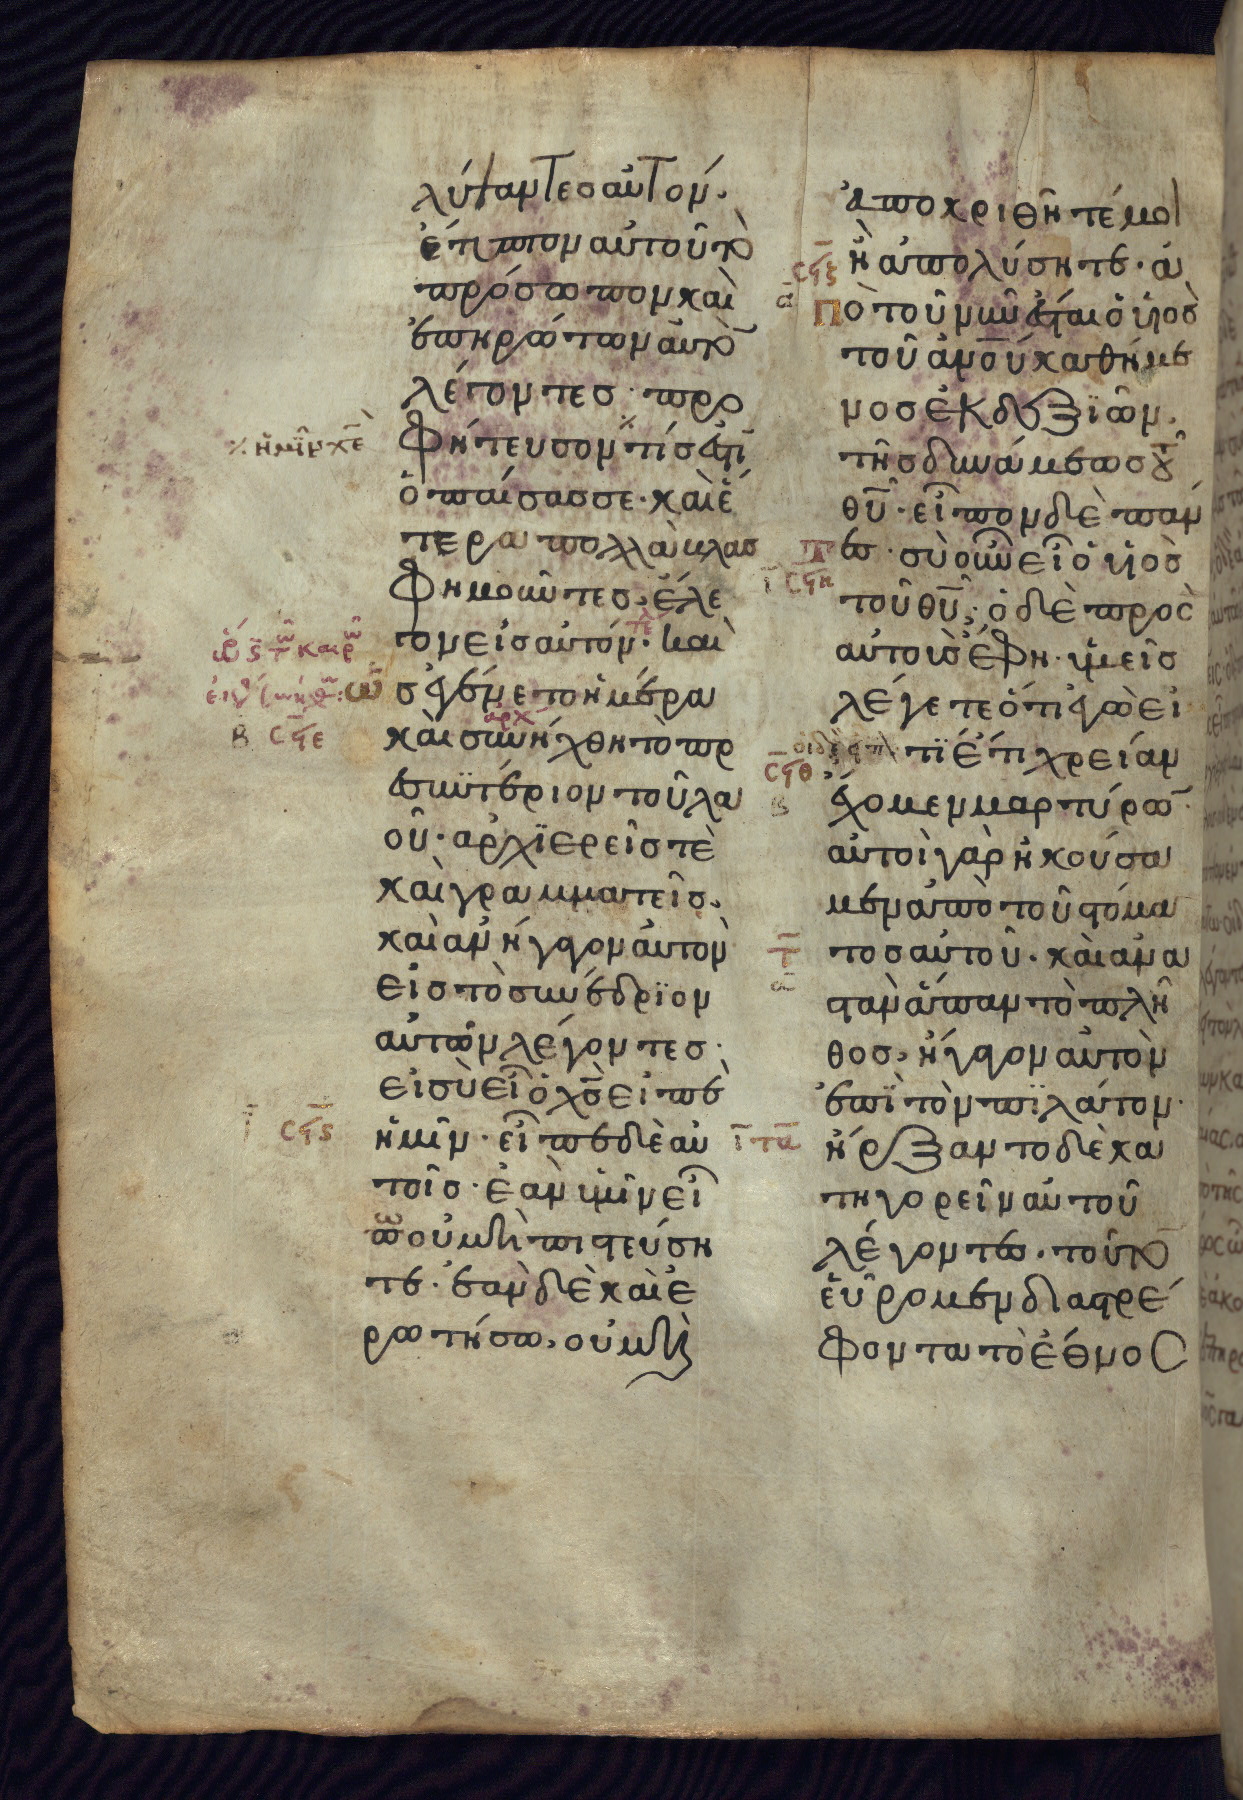 λύψαντεσ αὐτὸν.
ἔτυπτον αὐτοῦ τὸ
πρόσωπον καὶ
ἐπηρώτων αὐτὸ
λέγοντεσ· προ
φήτευσον τίσ ἐστὶ
ὁ παίσασ σε· καὶ ἕ
τερα πολλὰ βλασ
φημοῦντεσ. ἔλε
γον εἰσ αὐτόν· καὶ
ὡσ ἐγένετο ἡμέρα
καὶ συνήχθη τὸ πρ
εσβϋτέριον τοῦ λα
οῦ· ἀρχϊερεῖσ τὲ
καὶ γραμματεῖσ.
καὶ ἀνήγαγον αὐτὸν
εἰσ τὸ συνέδρϊον
αὐτῶν λέγοντεσ·
εἰ σὺ εἶ ὁ χ̅σ̅ εἰπὲ
ἡμῖν· εἶπε δὲ αὐ
τοῖσ· ἐὰν ὑμῖν εἴ
πω οὐ μὴ πιστεύση
τε· ἐὰν δὲ καὶ ἐ
ρωτήσω, οὐ μὴ
ἀποκριθῆτέ μοι
ἢ ἀπολύσητε· ἀ
πὸ τοῦ νῦν ἔσται ὁ υἱὸσ
τοῦ α̅ν̅ο̅υ̅ καθήμε
νοσ ἐκ δεξϊῶν.
τῆσ δυνάμεωσ τοῦ
θ̅υ̅· εἶπον δὲ πάν
τεσ· σὺ οὖν εἶ ὁ υἱὸσ
τοῦ θ̅υ̅; ὁ δὲ πρὸσ
αὐτοὺσ ἔφη· ὑμεῖσ
λέγετε ὅτι ἐγώ εἰ
τϊ ἔτι χρείαν
ἔχομεν μαρτύρω̅·
αὐτοὶ γὰρ ἠκούσα
μεν ἀπὸ τοῦ στόμα
τοσ αὐτοῦ· καὶ ἀνα
στὰν ἅπαν τὸ πλῆ
θοσ, ἤγαγον αὐτὸν
ἐπϊ τὸν πϊλάτον·
ἤρξαντο δὲ κα
τηγορεῖν αὐτοῦ
λέγοντεσ· τοῦτο̅
εὕρομεν διαστρέ
φοντα τὸ ἔθνοσ